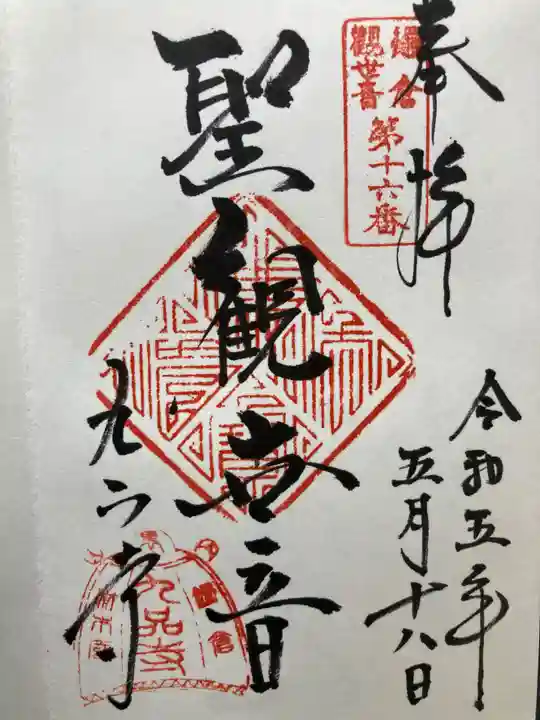 奉拝
鎌倉
観世音
第十六番
令和五年
五月十八日
聖観世音
九品寺
九品寺